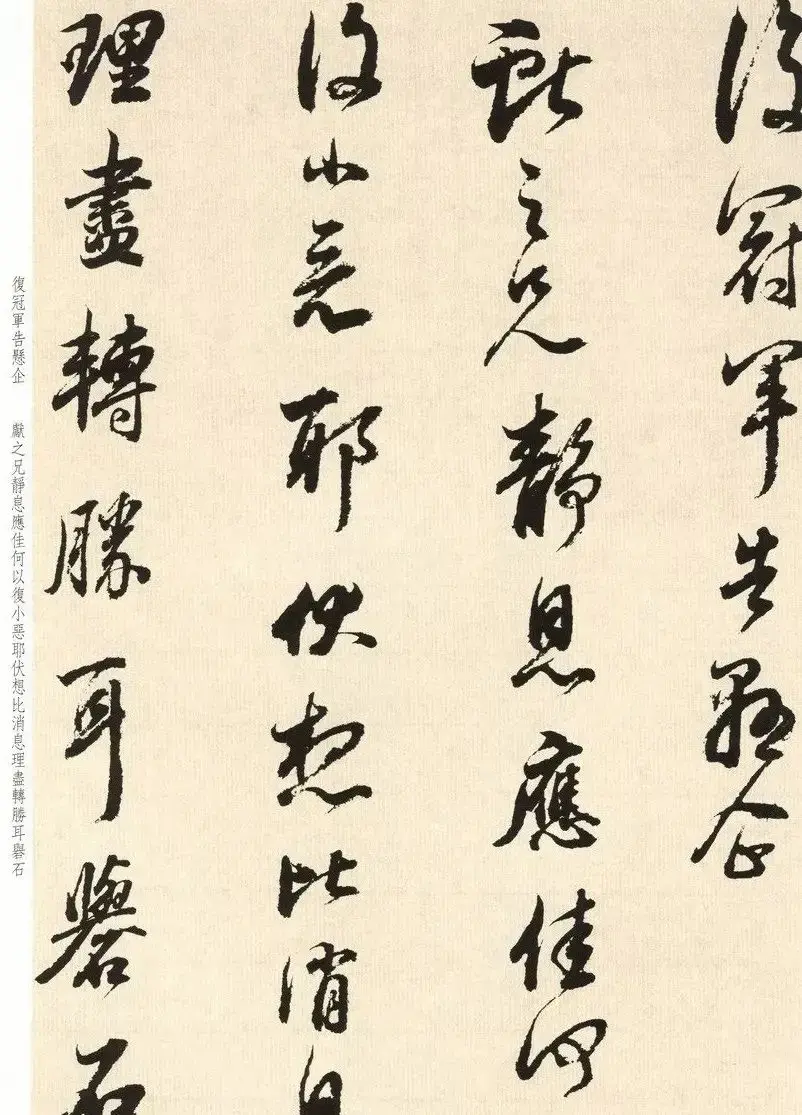 復冠軍告懸企
獻之兄靜息應佳何
復小惡耶伏想比消息
理盡轉勝耳礜石
復冠軍告懸企　獻之兄靜息應佳何以復小惡耶伏想比消息理盡轉勝耳礜石